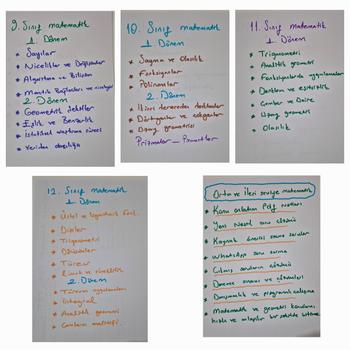 9. Sınıf matematik
1. Dönem
* Sayılar
* Nicelikler ve Değişimler
* Algoritma ve Bilişim
* Mantık Bağlaçları ve niceleyiciler
2. Dönem
* Geometrik Şekiller
* Eşlik ve Benzerlik
* İstatistiksel araştırma süreci
* Veriden olasılığa
10. Sınıf matematik
1. Dönem
* Sayma ve Olasılık
* Fonksiyonlar
* Polinomlar
2. Dönem
* İkinci dereceden denklemler
* Dörtgenler ve çokgenler
* Uzay geometrisi
Prizmalar - Piramitler
11. Sınıf matematik
1. Dönem
* Trigonometri
* Analitik geometri
* Fonksiyonlarda uygulamalar
* Denklem ve eşitsizlik
* Çember ve Daire
* Uzay geometri
* Olasılık
12. Sınıf matematik
1. Dönem
* Üstel ve logaritmik fonk.
* Diziler
* Trigonometri
* Dönüşümler
* Türev
* Limit ve süreklilik
2. Dönem
* Türevin uygulamaları
* İntegral
* Analitik geometri
* Çemberin analitiği
Orta ve İleri seviye matematik
* Konu anlatım Pdf Notları
* Yeni Nesil soru çözümü
* Kaynak önerisi
* WhatsApp soru sorma
* Çıkmış soruların çözümü
* Deneme sınavı ve çözümleri
* Danışmanlık ve programlı çalışma
* Matematik ve geometri konularını
hızlı ve anlaşılır bir şekilde bitirme